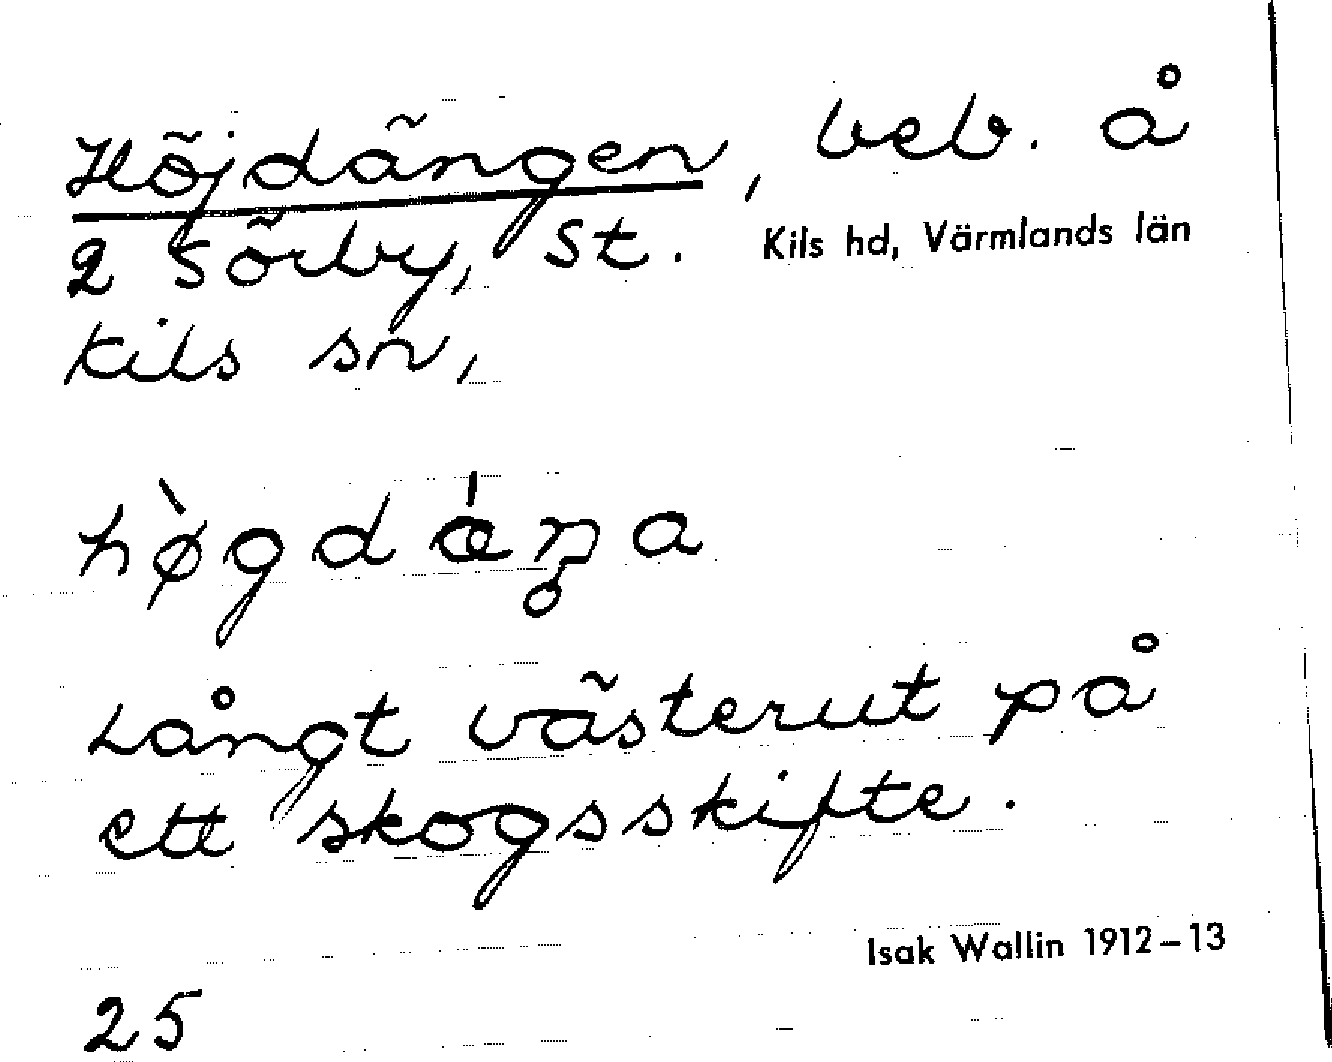 Höjdängen, beb. å
2 Sörby, St. Kils hd, Värmlands län
Kils sn,
Långt västerut på
ett skogsskifte.
Isak Wallin 1912–13
25